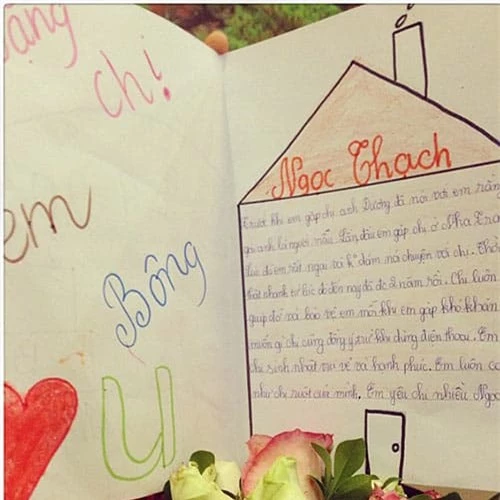 ặng
chị!
em
Bông
U
Ngọc Thạch
Trước khi em gặp chị anh Dương đã nói với em rằn
gọi anh là người mẫu. Lần đầu em gặp chị ở Nha Tra
lúc đó em rất ngại và k° dám nói chuyện với chị. Thời
thật nhanh từ lúc đó đến nay đã đc 2 năm rồi. Chị luôn
giúp đỡ và bảo vệ em mỗi khi em gặp khó khăn
muốn gì chị cũng đồng ý trừ khi dùng điện thoại. Em
chị sinh nhật vui vẻ và hạnh phúc. Em luôn co
như chị ruột của mình. Em yêu chị nhiều Ngọc